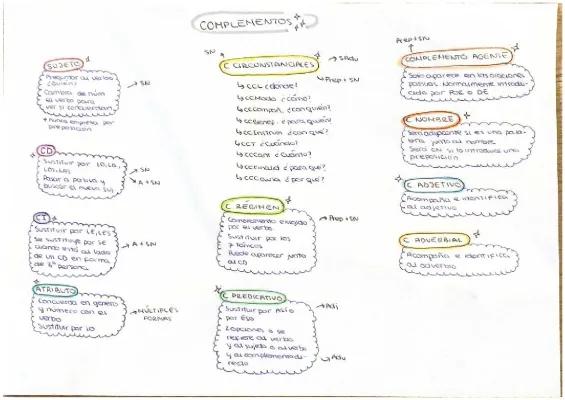 COMPLEMENTOS
SUJETO
Preguntar al verbo
¿Quién?
Cambia de núm
el verbo para
ver si concuerdan
* Nunca empieza por
preposición
→ SN
CD
Sustituir por LO, LA,
LOS, LAS
Pasar a pasiva y
buscar el nuevo SUJ
→ SN
→ A + SN
CI
Sustituir por LE, LES
Se sustituye por SE
cuando está al lado
de un CD en forma
de 3ª persona
→ A + SN
ATRIBUTO
Concuerda en género
y número con el
verbo
Sustituir por LO
→ MÚLTIPLES
FORMAS
SN
C CIRCUNSTANCIALES
→ SAdv
→ Prep + SN
↳ CCL ¿dónde?
↳ CCModo ¿cómo?
↳ CCCompañ. ¿con quién?
↳ CCBenef. ¿para quién?
↳ CCInstrum ¿con qué?
↳ CCT ¿cuándo?
↳ CCCant ¿cuánto?
↳ CCFinalid ¿para qué?
↳ CCCausa ¿por qué?
C RÉGIMEN
Complemento exigido
por el verbo
Sustituir por los
Puede aparecer junto
al CD
→ Prep + SN
C PREDICATIVO
Sustituir por ASÍ o
por ESO
2 opciones o se
refiere al verbo
y al sujeto o al verbo
y al complemento di-
recto
→ Adj
→ Adv
Prep + SN
COMPLEMENTO AGENTE
Solo aparece en las oraciones
pasivas. Normalmente introdu-
cida por POR o DE
C NOMBRE
Será adyacente si es una pala-
bra junto al nombre
Será CN si lo introduce una
preposición
C ADJETIVO
Acompaña e identifica
al adjetivo
C ADVERBIAL
Acompaña e identifica
al adverbio